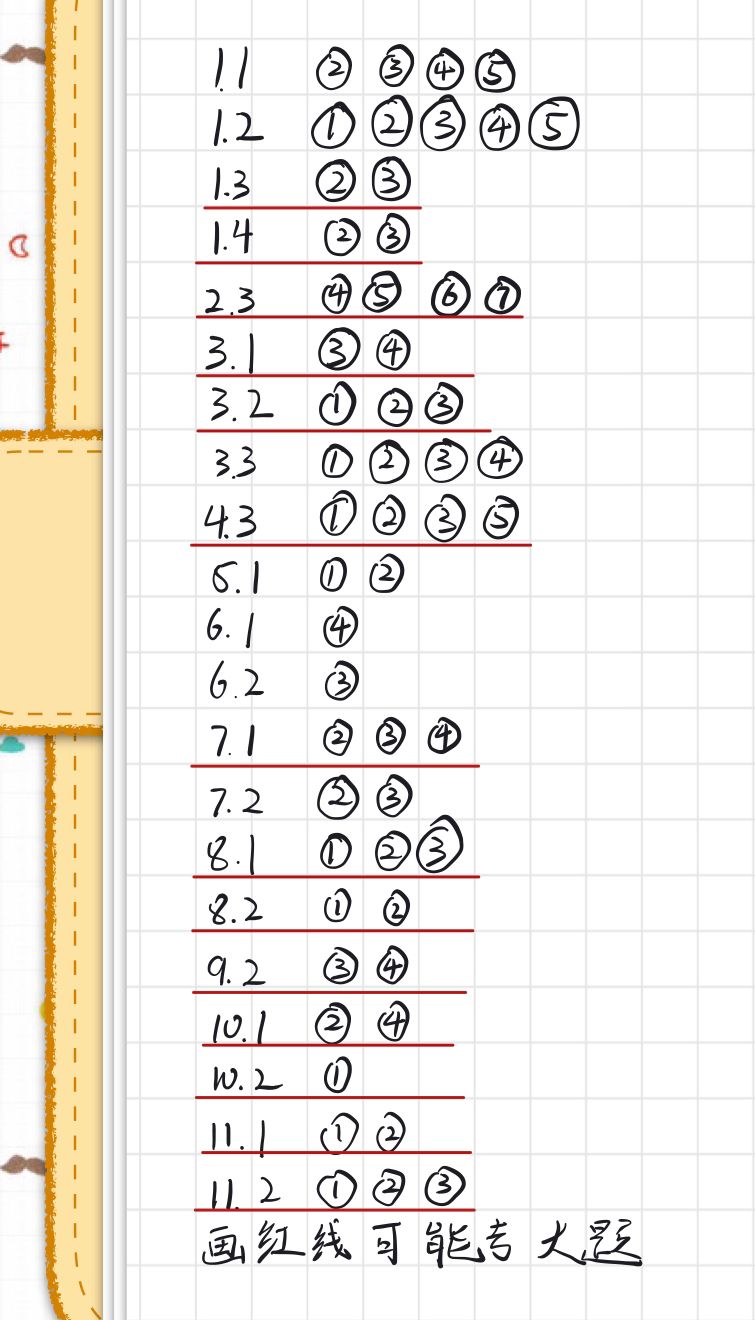 1.1 ② ③ ④ ⑤
1.2 ① ② ③ ④ ⑤
1.3 ② ③
1.4 ② ③
2.3 ④ ⑤ ⑥ ⑦
3.1 ③ ④
3.2 ① ② ③
3.3 ① ② ③ ④
4.3 ① ② ③ ⑤
5.1 ① ②
6.1 ④
6.2 ③
7.1 ② ③ ④
7.2 ② ③
8.1 ① ② ③
8.2 ① ②
9.2 ③ ④
10.1 ② ④
10.2 ①
11.1 ① ②
11.2 ① ② ③
画红线可能考大题